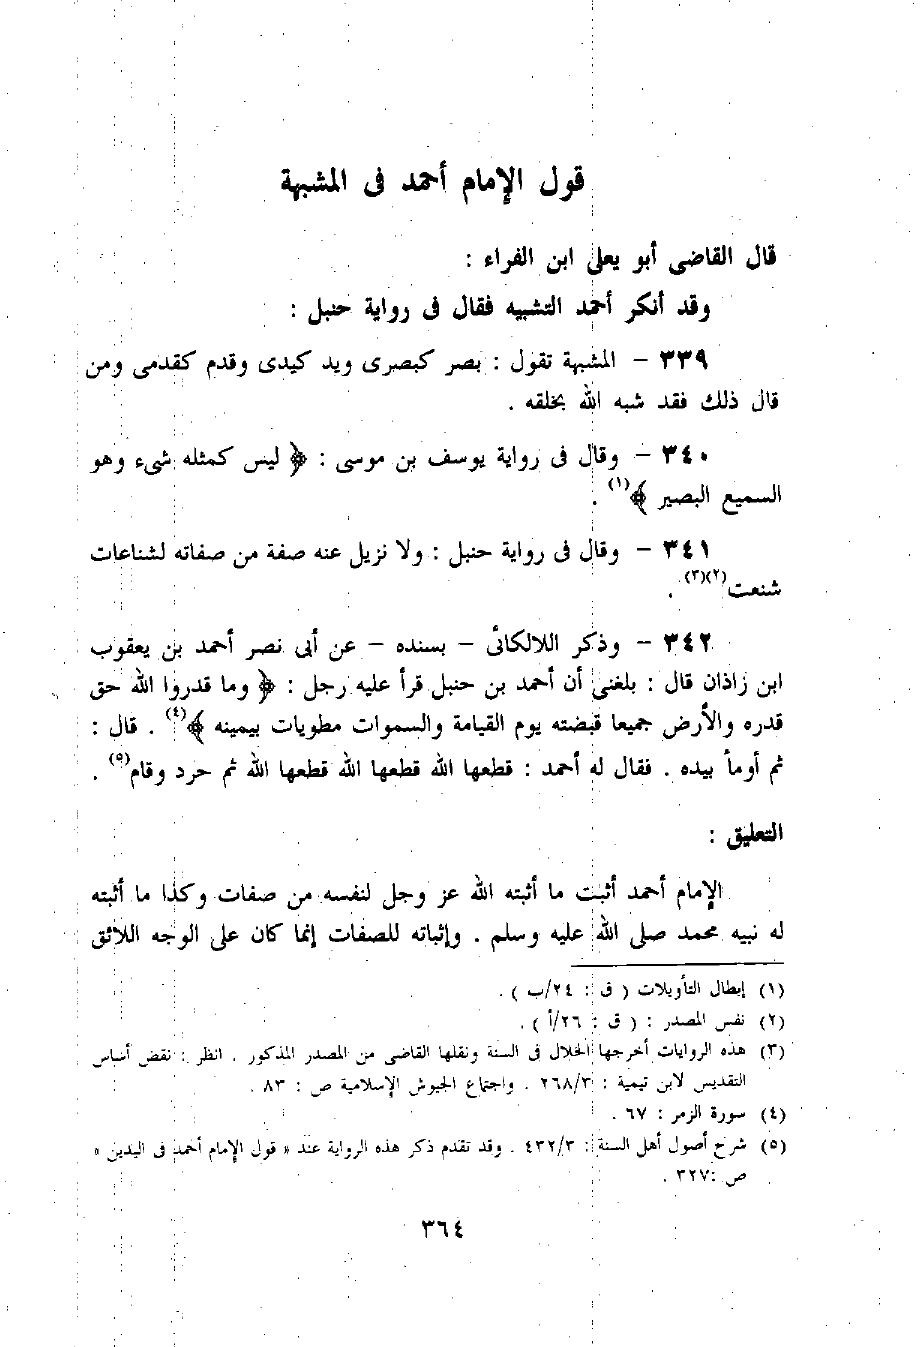 قول الإمام أحمد فى المشبهة
قال القاضى أبو يعلى ابن الفراء :
وقد أنكر أحمد التشبيه فقال فى رواية حنبل :
٣٣٩ - المشبهة تقول : بصر كبصرى ويد كيدى وقدم كقدمى ومن
قال ذلك فقد شبه الله بخلقه .
٣٤٠ - وقال فى رواية يوسف بن موسى : ﴿ ليس كمثله شىء وهو
السميع البصير ﴾(١) .
٣٤١ - وقال فى رواية حنبل : ولا نزيل عنه صفة من صفاته لشناعات
شنعت(٢)(٣) .
٣٤٢ - وذكر اللالكائى - بسنده - عن أبى نصر أحمد بن يعقوب
ابن زاذان قال : بلغنى أن أحمد بن حنبل قرأ عليه رجل : ﴿ وما قدروا الله حق
قدره والأرض جميعا قبضته يوم القيامة والسموات مطويات بيمينه ﴾(٤) . قال :
ثم أومأ بيده . فقال له أحمد : قطعها الله قطعها الله قطعها الله ثم حرد وقام(٥) .
التعليق :
الإمام أحمد أثبت ما أثبته الله عز وجل لنفسه من صفات وكذا ما أثبته
له نبيه محمد صلى الله عليه وسلم . وإثباته للصفات إنما كان على الوجه اللائق
(١) إبطال التأويلات ( ق : ٢٤/ب ) .
(٢) نفس المصدر : ( ق : ٢٦/أ ) .
(٣) هذه الروايات أخرجها الخلال فى السنة ونقلها القاضى من المصدر المذكور . انظر : نقض أساس
التقديس لابن تيمية : ٢٦٨/٣ . واجتماع الجيوش الإسلامية ص : ٨٣ .
(٤) سورة الزمر : ٦٧ .
(٥) شرح أصول أهل السنة : ٤٣٢/٣ . وقد تقدم ذكر هذه الرواية عند « قول الإمام أحمد فى اليدين »
ص :٣٢٧ .
٣٦٤